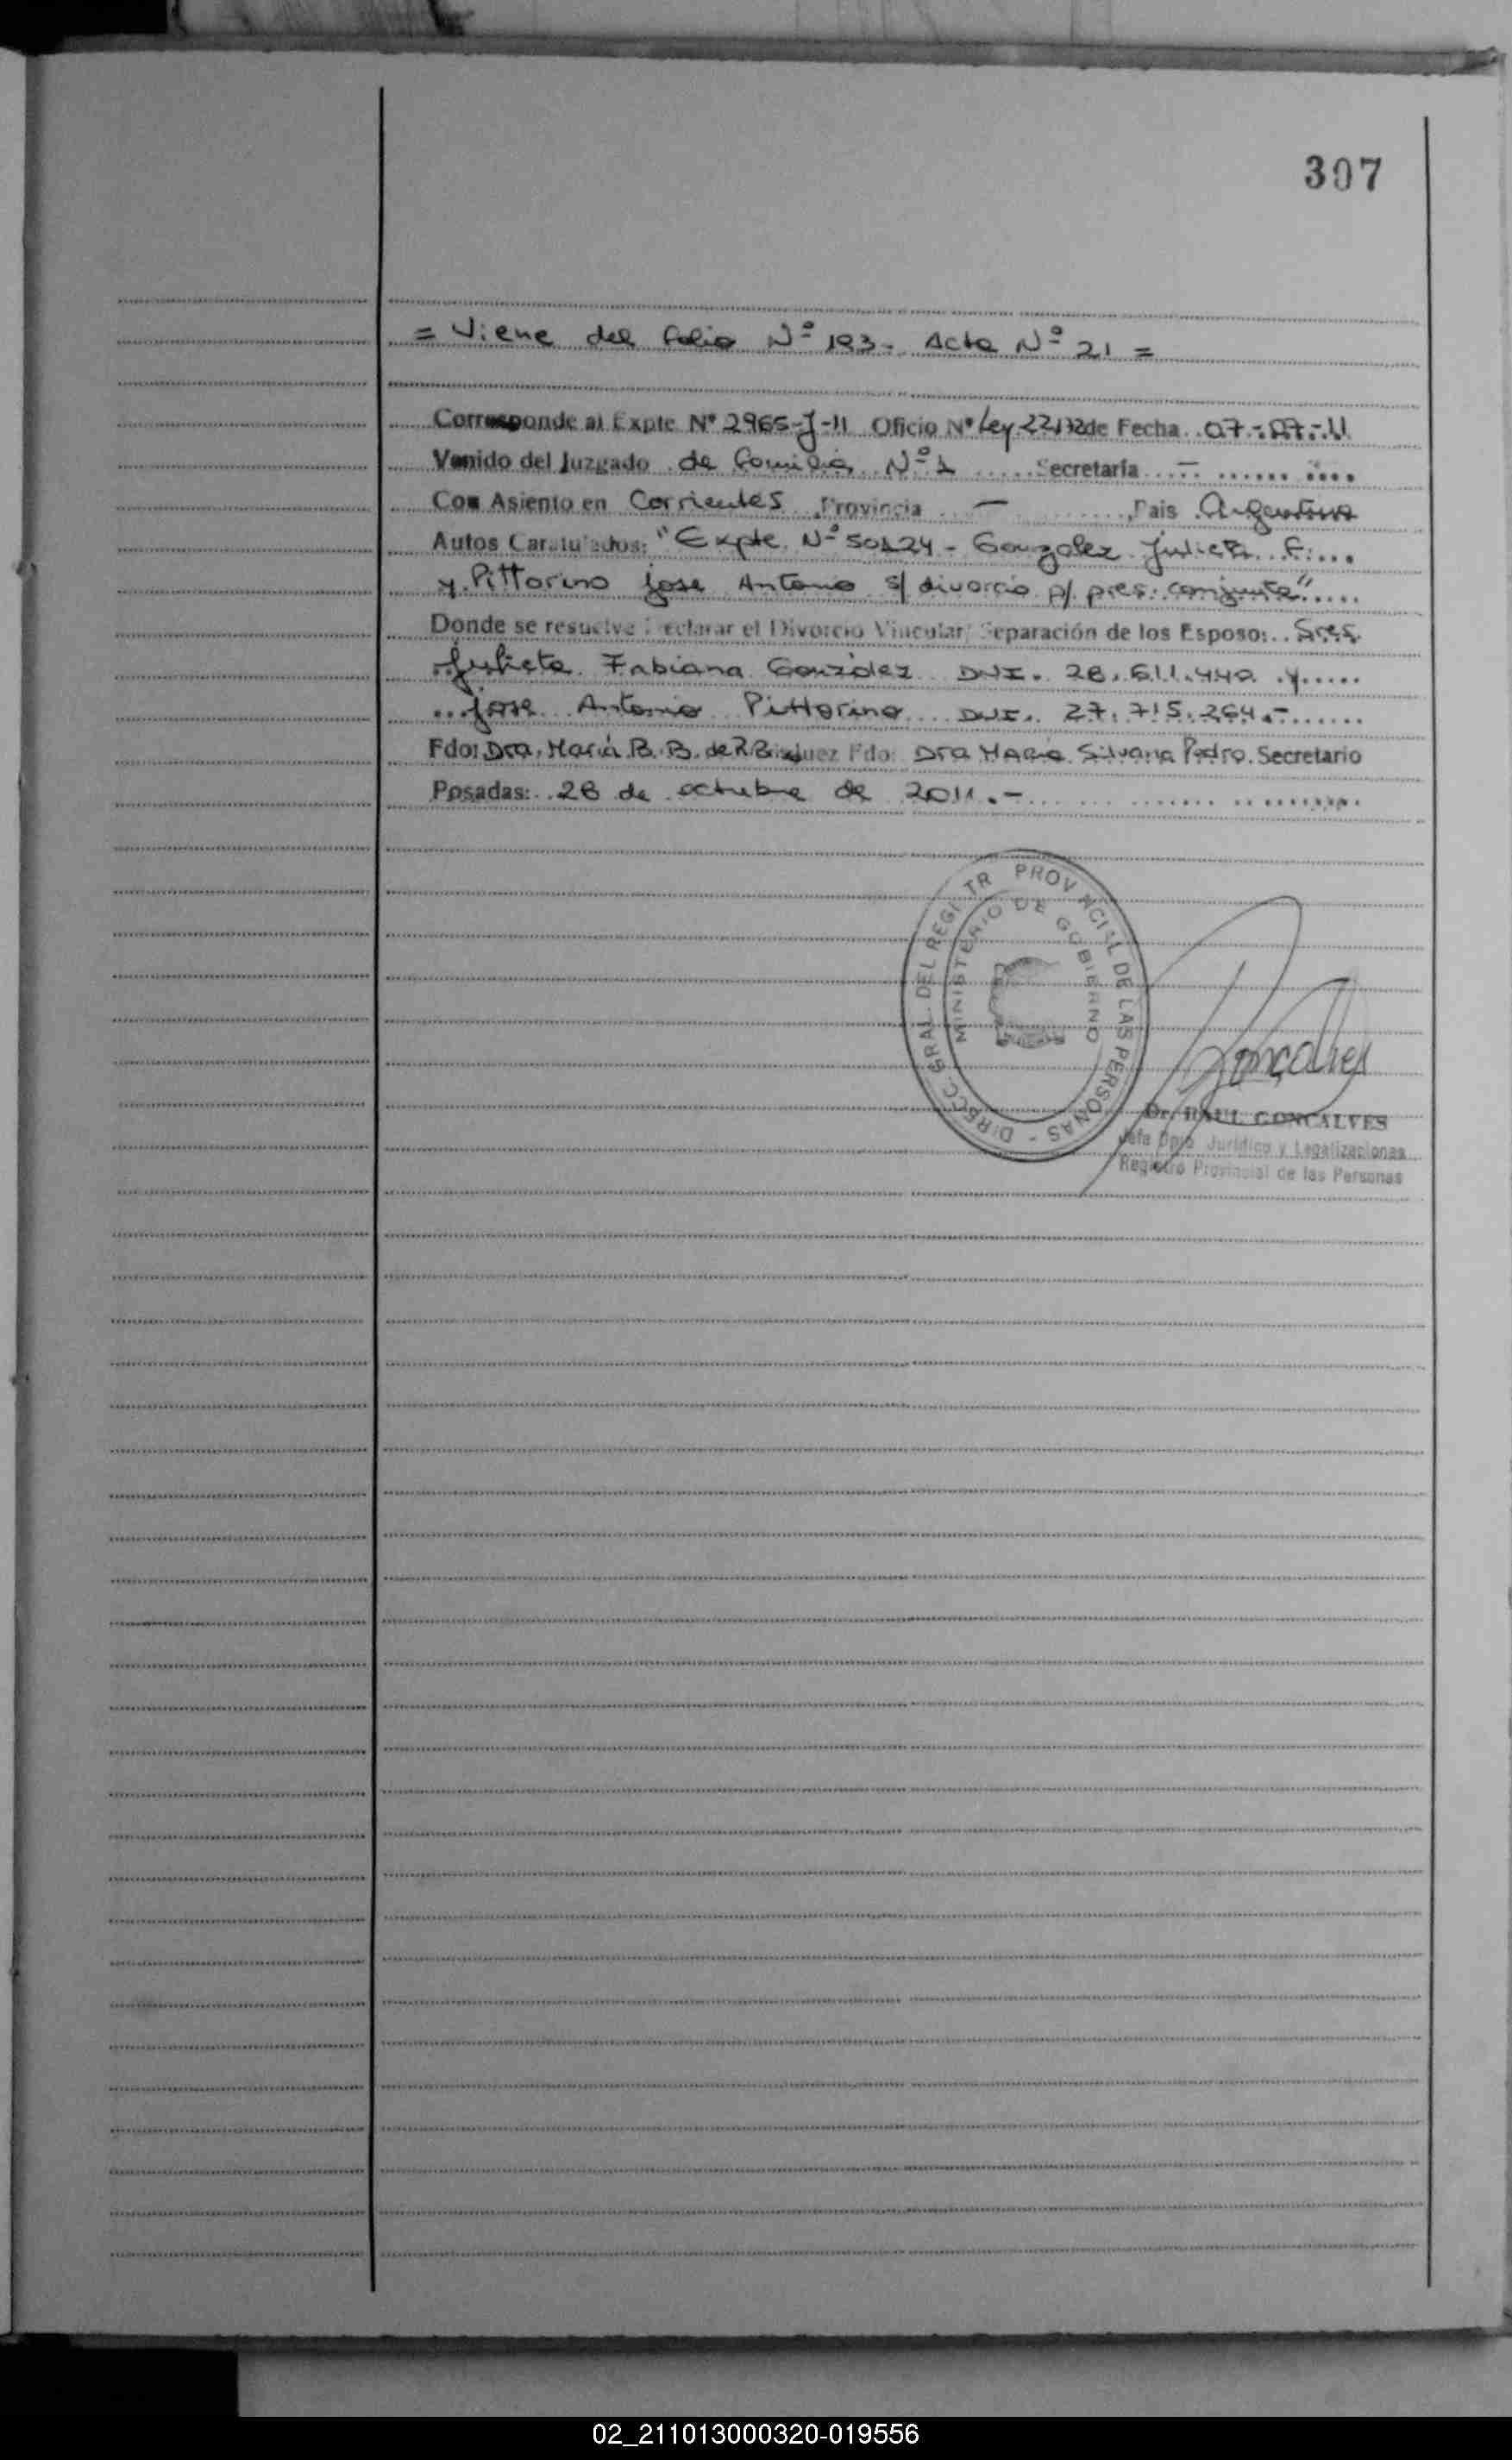 307
= Viene del folio Nº 193- Acta Nº 21 =
Corresponde al Expte Nº 2965-J-11 Oficio Nº Ley 22172 de Fecha 07-07-11
Venido del Juzgado de Familia Nº 1 Secretaría -
Con Asiento en Corrientes Provincia - País Argentina
Autos Caratulados: "Expte. Nº 50124 - Gonzalez Julieta F.
y Pittorino Jose Antonio s/ divorcio p/ pres. conjunta"
Donde se resuelve Declarar el Divorcio Vincular/Separación de los Esposo: Sres.
Julieta Fabiana González DNI. 28.611.440 y
Jose Antonio Pittorino DNI. 27.715.264.-
Fdo: Dra. María B. B. de Fdo: Dra MARIA Silvana Pedro. Secretario
Posadas: 28 de octubre de 2011.-
DIRECC. GRAL. DEL REGISTR PROVINCIAL DE LAS PERSONAS -
MINISTERIO DE GOBIERNO
Goncalves
Dr. RAUL GONCALVES
Jefe Dpto Jurídico y Legalizaciones
Registro Provincial de las Personas
02_211013000320-019556